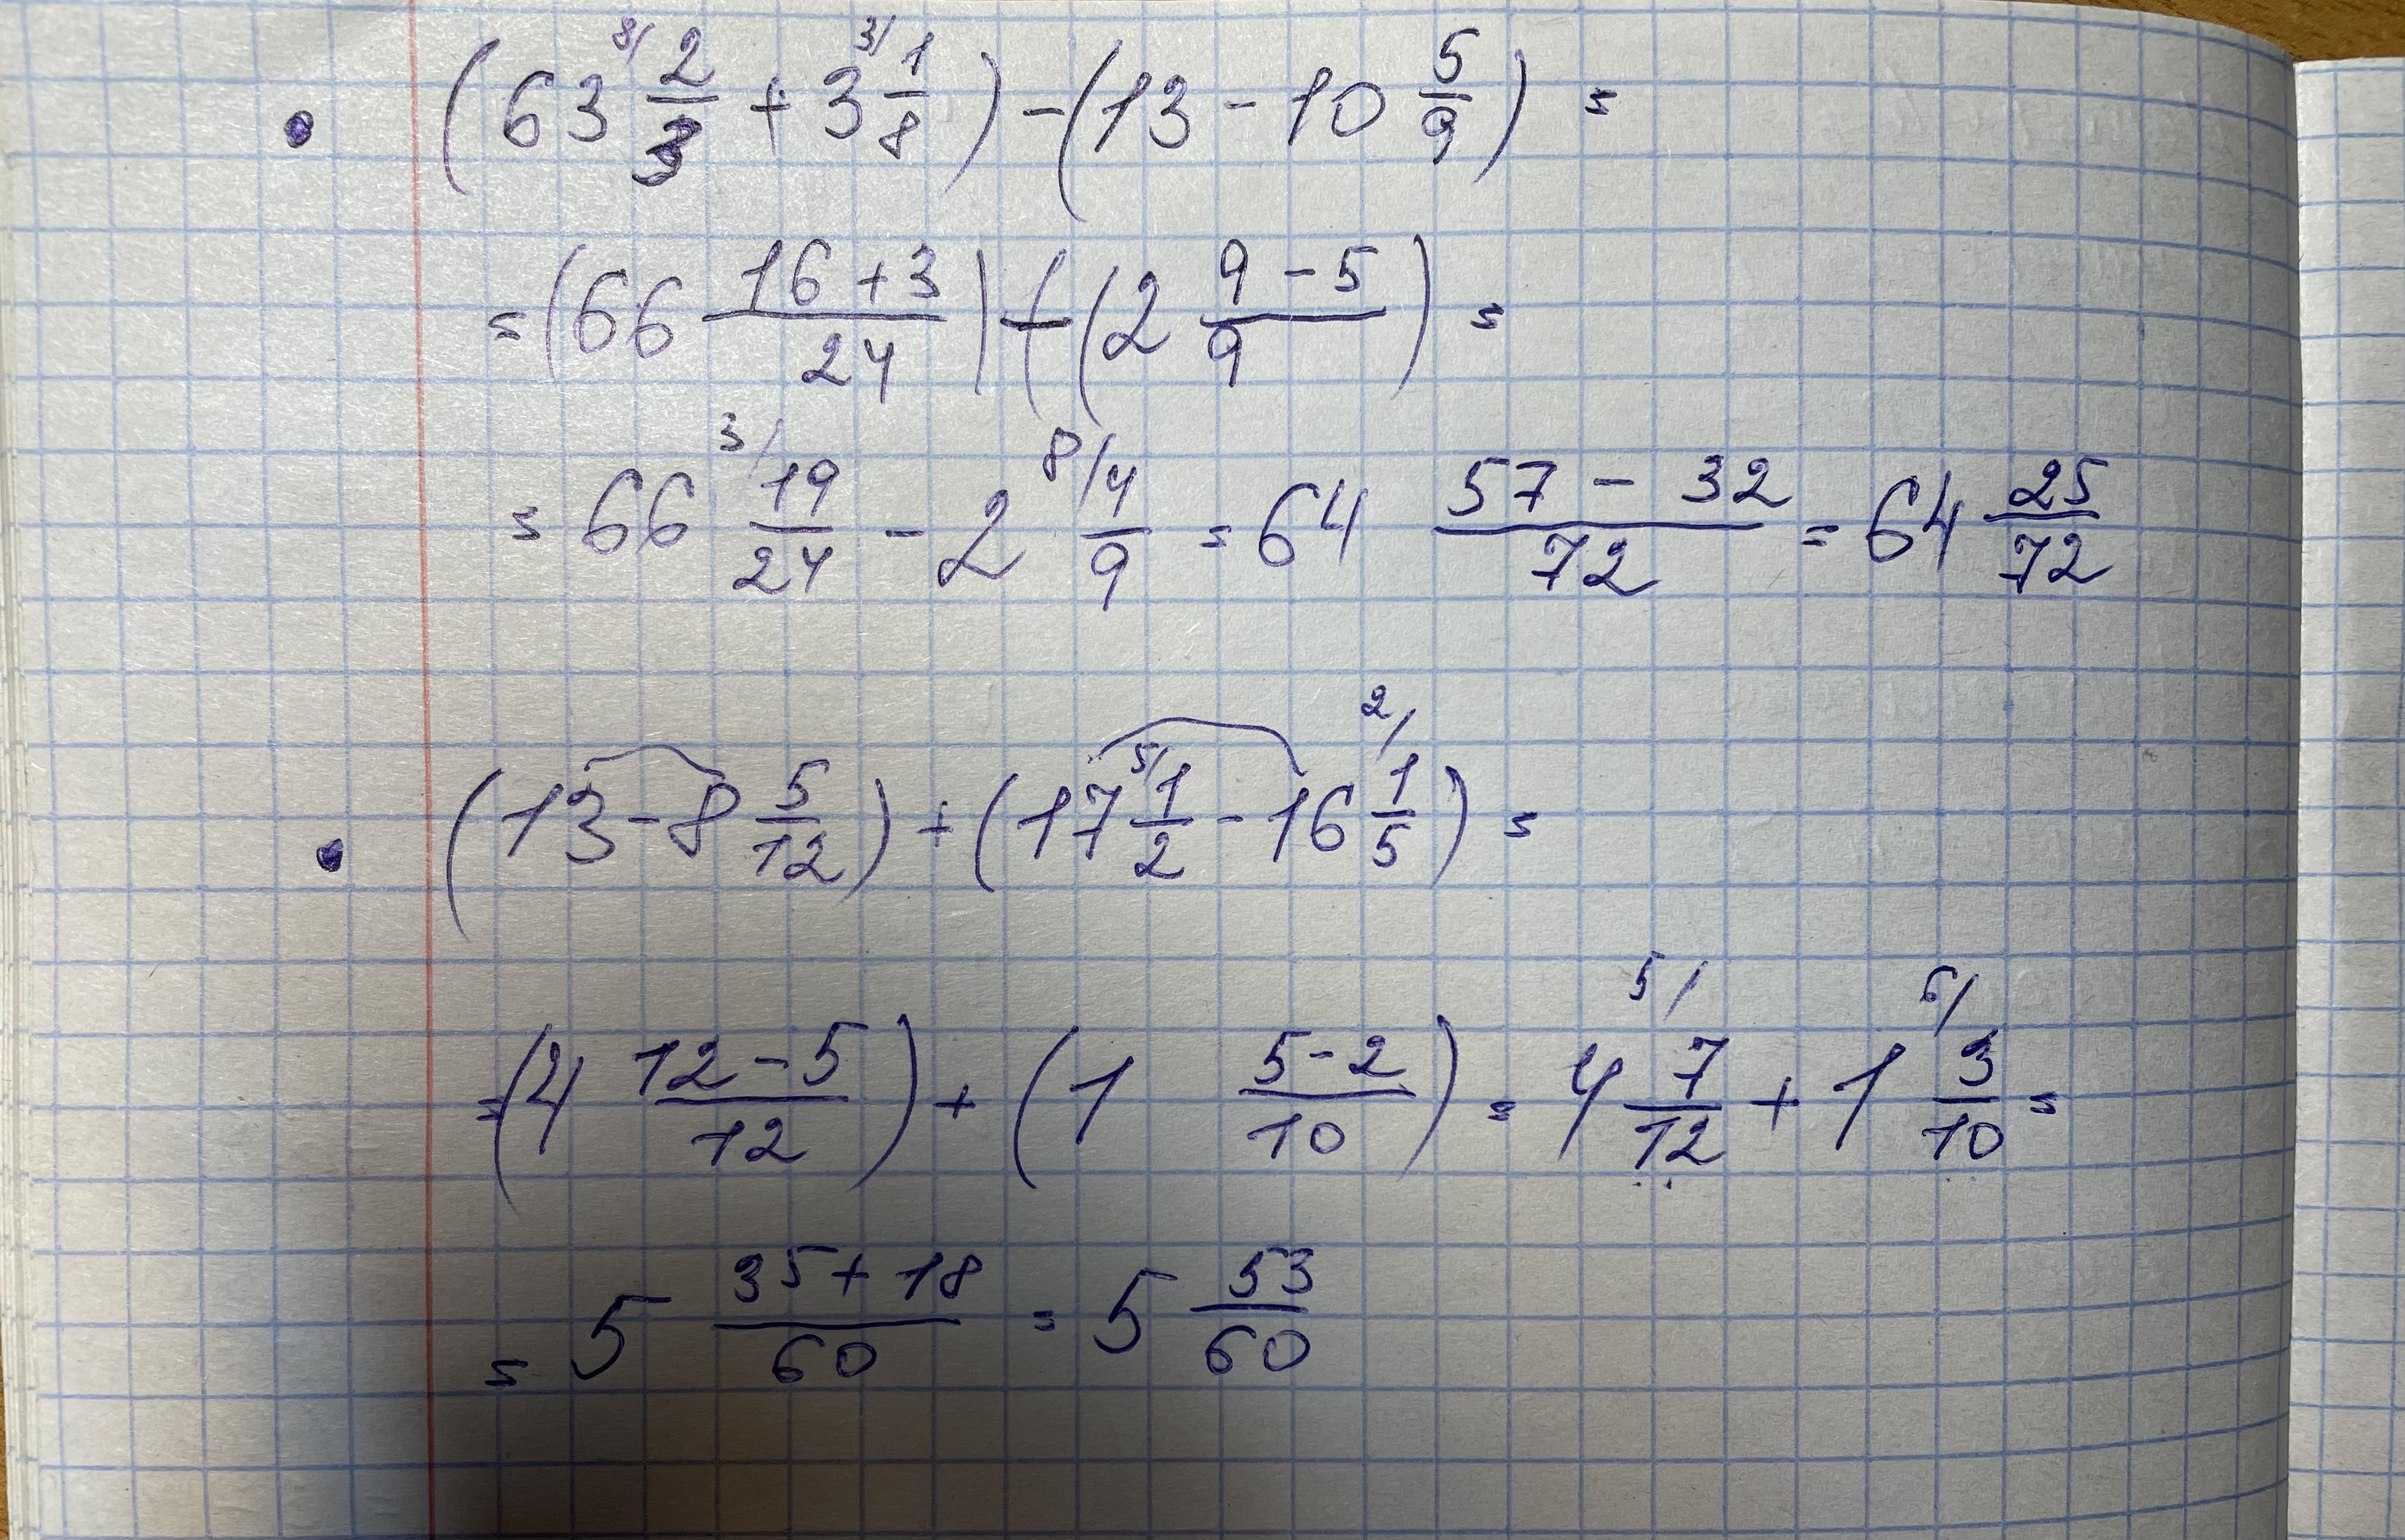 • (63 ⁸/ 2/3 + 3 ³/ 1/8) - (13 - 10 5/9) =
= (66 (16+3)/24) - (2 (9-5)/9) =
= 66 ³/ 19/24 - 2 ⁸/ 4/9 = 64 (57-32)/72 = 64 25/72
• (13 - 8 5/12) + (17 ⁵/ 1/2 - 16 ²/ 1/5) =
= (4 (12-5)/12) + (1 (5-2)/10) = 4 ⁵/ 7/12 + 1 ⁶/ 3/10 =
= 5 (35+18)/60 = 5 53/60